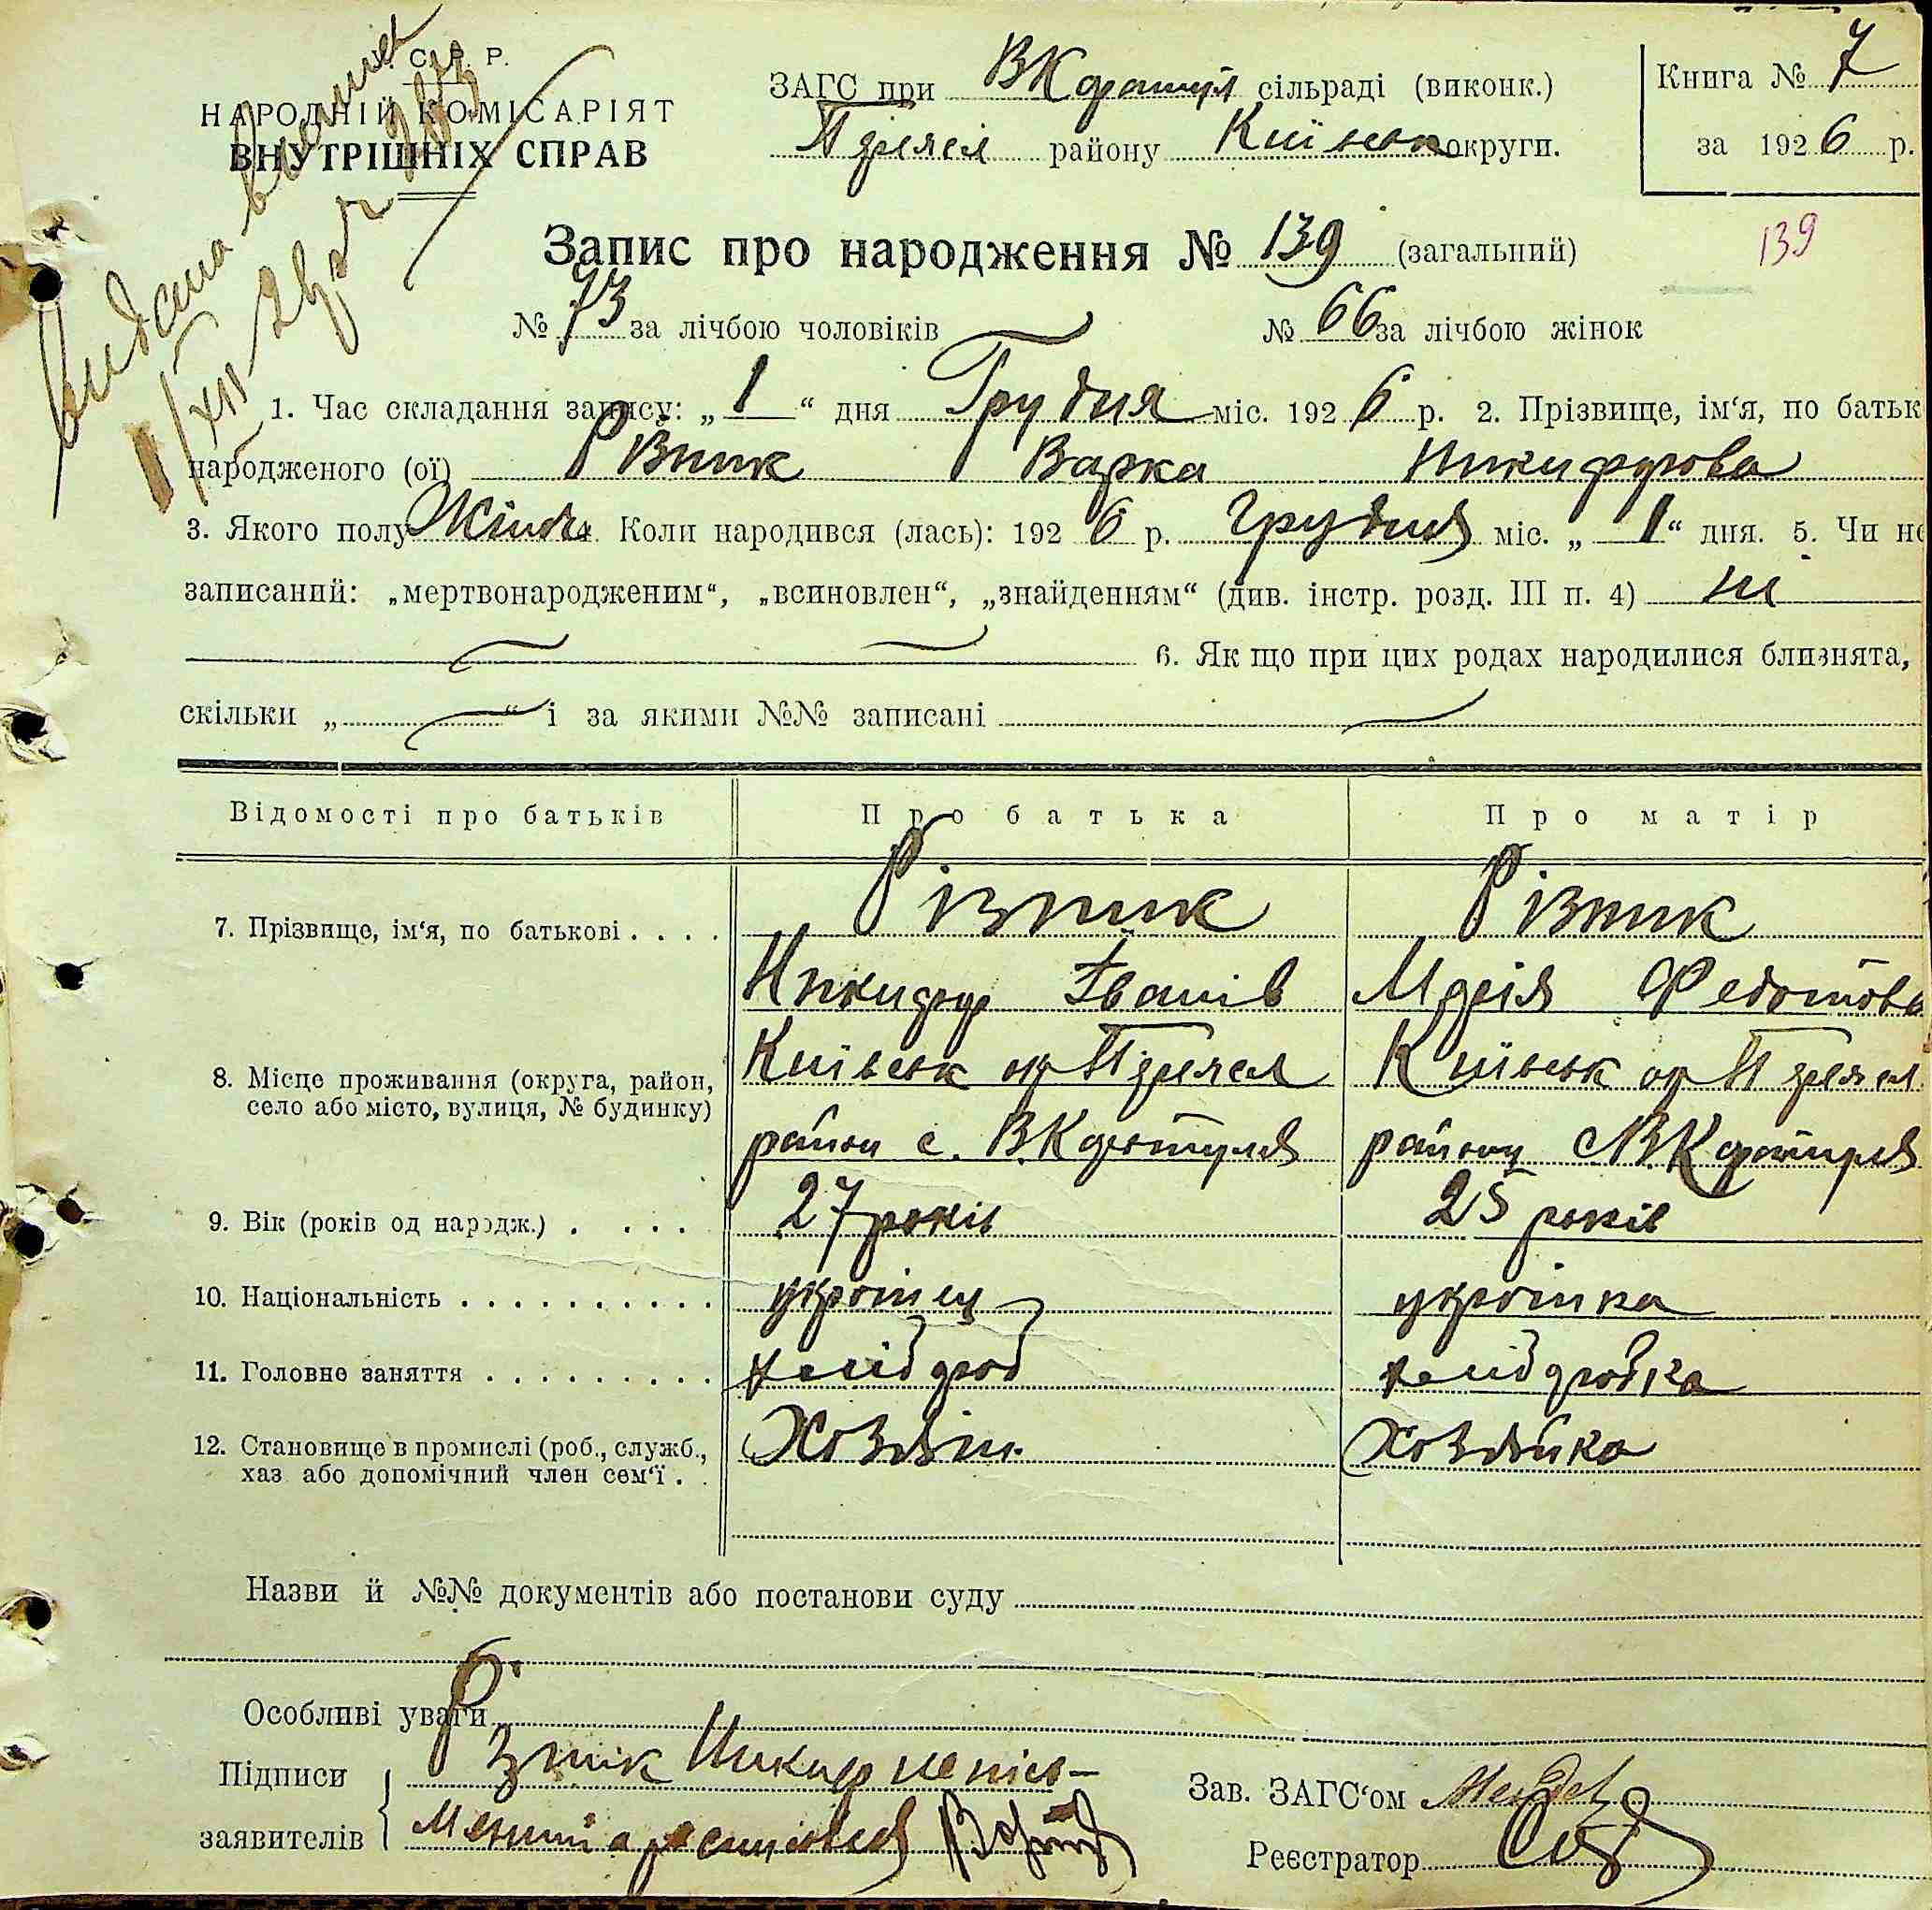 С. Р. Р.
НАРОДНІЙ КОМІСАРІЯТ
ВНУТРІШНІХ СПРАВ
ЗАГС при ВКаратул сільраді (виконк.)
Пдреясл району Київськ округи.
Книга № 7
за 1926 р.
Запис про народження № 139 (загальний)
139
№ 73 за лічбою чоловіків № 66 за лічбою жінок
видана
1. Час складання запису: „1“ дня Грудня міс. 1926 р. 2. Прізвище, ім‘я, по батьк
народженого (ої) Різник Варка Никифорова
3. Якого полу Жіноч Коли народився (лась): 1926 р. грудня міс. „1“ дня. 5. Чи не
записаний: „мертвонародженим“, „всиновлен“, „знайденням“ (див. інстр. розд. III п. 4) ні
6. Як що при цих родах народилися близнята,
скільки „ “ і за якими №№ записані
Відомості про батьків Про батька Про матір
Різник Різник
7. Прізвище, ім‘я, по батькові . . . .
Никифор Іванів Марія Федотова
Київськ ок Пдреясл Київськ ок Пдреясл
8. Місце проживання (округа, район,
село або місто, вулиця, № будинку)
район с. ВКаратуля району с ВКаратуля
9. Вік (років од народж.) . . . . 27 років 25 років
10. Національність . . . . . . . . . . українец українка
11. Головне заняття . . . . . . . . . . хлібороб хліборобка
12. Становище в промислі (роб., служб.,
хаз або допомічний член сем‘ї . . Хозяін Хозяйка
Назви й №№ документів або постанови суду
Особливі уваги
Підписи
заявителів
Різник Никифор непись-
менний а
Зав. ЗАГС‘ом
Реєстратор